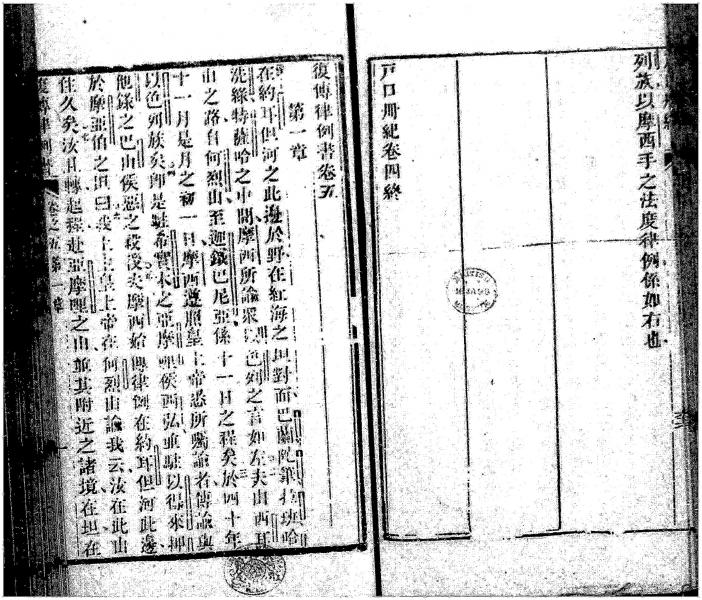 列族以摩西手之法度律例係如右也
戶口冊紀卷四終
復傳律例書卷五
第一章
在約耳但河之此邊於野在紅海之坦對面巴蘭陀弗拉班哈
洗綠特薩哈之中間摩西所諭眾以色列之言如左夫由西耳
山之路自何烈山至迦鐵巴尼亞係十一日之程矣於四十年
十一月是月之初一日摩西遵照皇上帝悉所囑諭者傳諭與
以色列族矣即是駐希實本之亞摩哩侯西弘並駐以得來押
他錄之巴山侯惡之殺後矣摩西始傳律例在約耳但河此邊
於摩亞伯之坦曰我上主皇上帝在何烈山諭我云汝在此山
住久矣汝且轉起程赴亞摩哩之山並其附近之諸境在坦在
復傳律例書 卷之五第一章